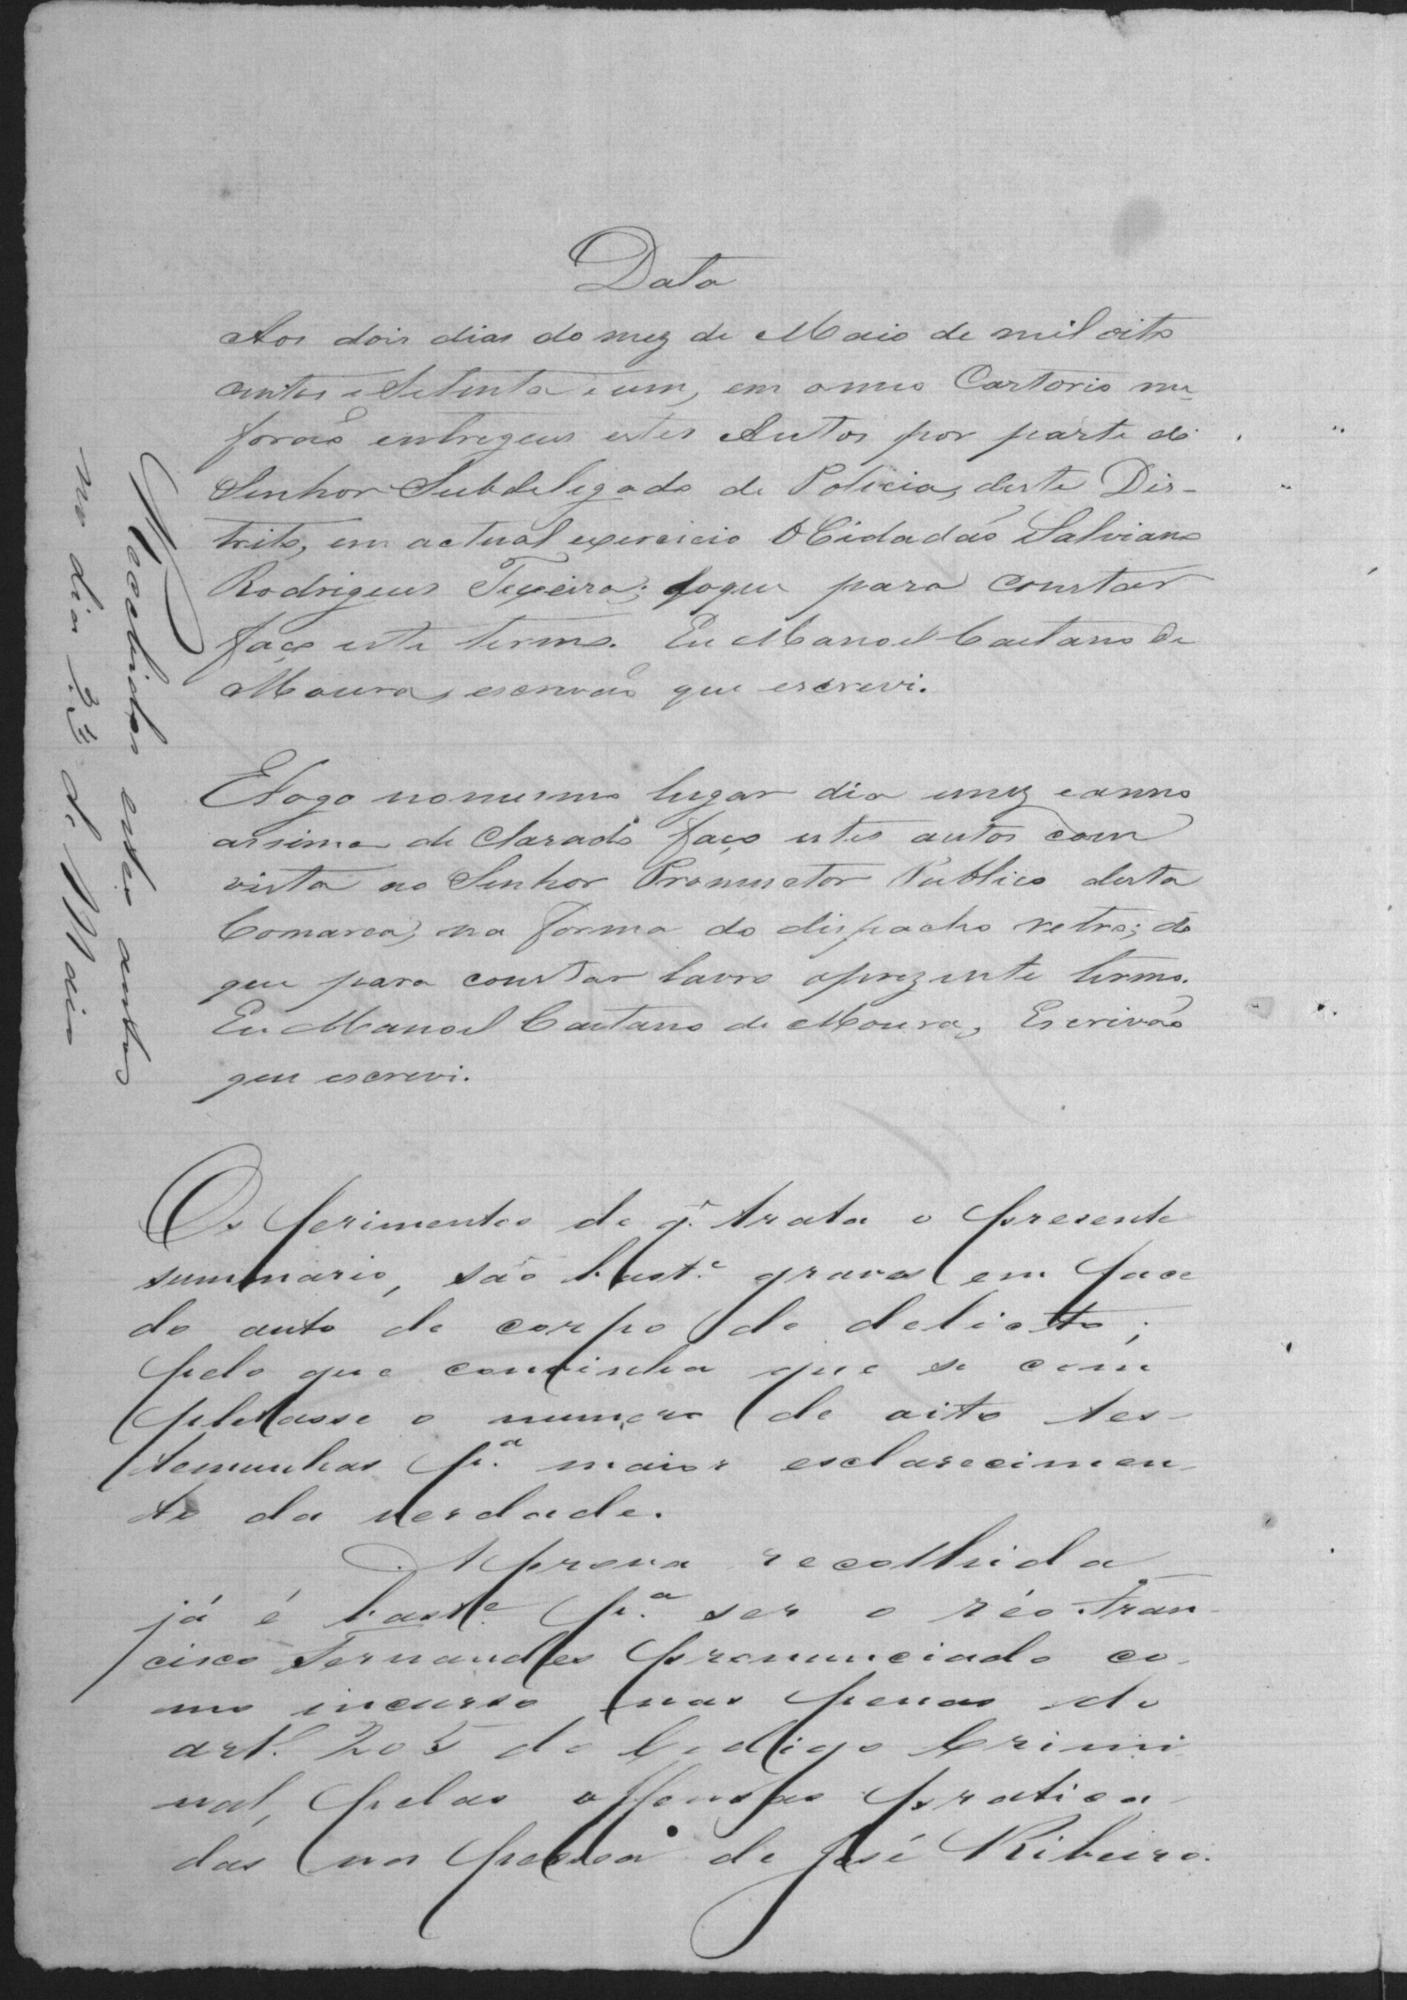 Data
Aos dois dias do mez de Maio de mil oito
centos e Setenta e um, em o meu Cartorio me
forão entregues estes Autos por parte do
Senhor Subdelegado de Policia, deste Dis-
trito, em actual exercicio O Cidadão Salviano
Rodrigues Texeira; doque para constar
faço este termo. Eu Manoel Caetano de
Moura, escrivão que escrevi.
E logo no mesmo lugar dia emez e anno
assima de Clarado faço estes autos com
vista ao Senhor Promuctor Publico desta
Comarca, na forma do dispacho retro; do
que para constar lavro oprezente termo.
Eu Manoel Caetano de Moura, Escrivão
que escrevi.
Recebidos estes autos
no dia 3 de Maio
Os ferimentos de q. trata o presente
summario, são bast.e graves em face
do auto de corpo de delicto;
pelo que convinha que se com
pletasse o numero de oito tes-
temunhas p.a maior esclarecimen
to da verdade.
A prova recolhida
já é bast.e p.a ser o réo Fran-
cisco Fernandes pronunciado co-
mo incurso nas penas do
art.o 205 do Codigo Crimi
nal, pelas offensas pratica-
das na pessoa de José Ribeiro.